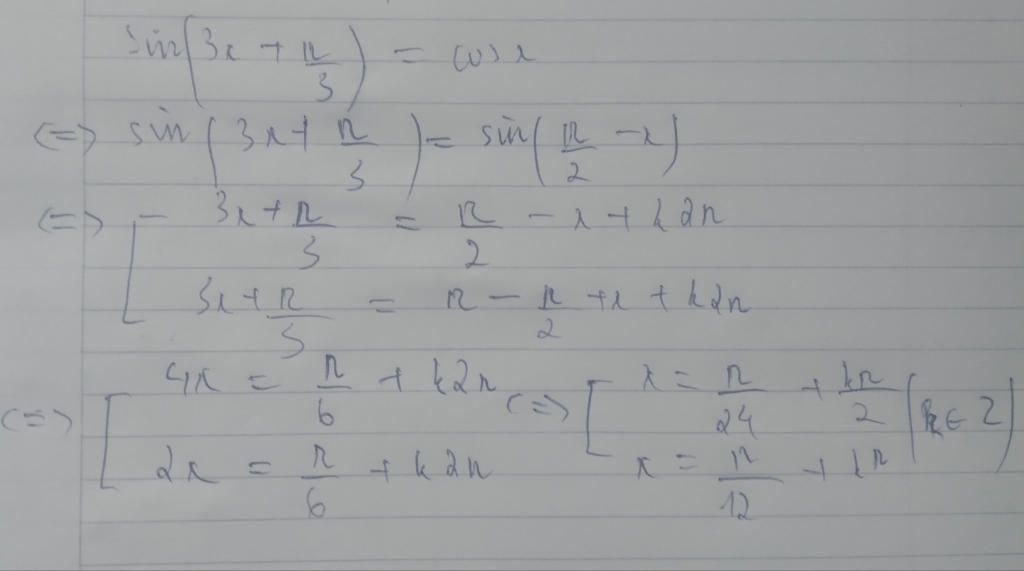 sin(3x + π/3) = cos x
<=> sin(3x + π/3) = sin(π/2 - x)
<=> [ 3x + π/3 = π/2 - x + k2π
3x + π/3 = π - π/2 + x + k2π
<=> [ 4x = π/6 + k2π <=> [ x = π/24 + kπ/2 (k ∈ Z)
2x = π/6 + k2π x = π/12 + kπ